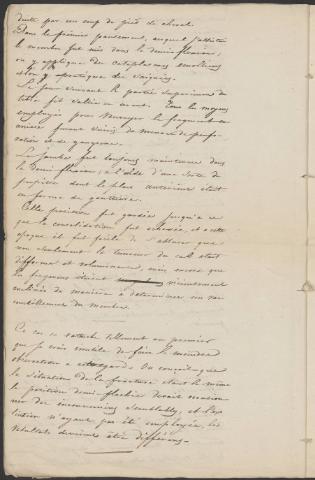 duite par un coup de pied de cheval.
Dans le premier pansement, auquel j'assistai
le membre fut mis dans la demi-flexion,
on y appliqua des cataplasmes émolliens
et l'on y pratiqua des saignées.
Le jour suivant la partie supérieure du
tibia fit saillie en avant. Tous les moyens
employés pour ramener le fragment en
arrière furent suivis de menace de perfo-
ration et de gangrène.
La jambe fut toujours maintenue dans
la demi-flexion, à l'aide d'une sorte de
pupitre dont le plan antérieur était
en forme de gouttière.
Cette position fut gardée jusqu'à ce
que la consolidation fut achevée, et à cette
époque il fut facile de s'assurer que
non seulement la tumeur du cal était
difforme et volumineuse, mais encore que
les fragmens étaient vicieusement
de manière à déterminer un rac-
courcissement du membre.
Ce cas se rattache tellement au premier
que je crois inutile de faire la moindre
observation à cet égard. On conçoit que
la situation de la fracture étant la même
la position demi-fléchie devait occasion-
ner des inconvéniens semblables, et l'ex-
tension n'ayant pas été employée, les
résultats devaient être différens.